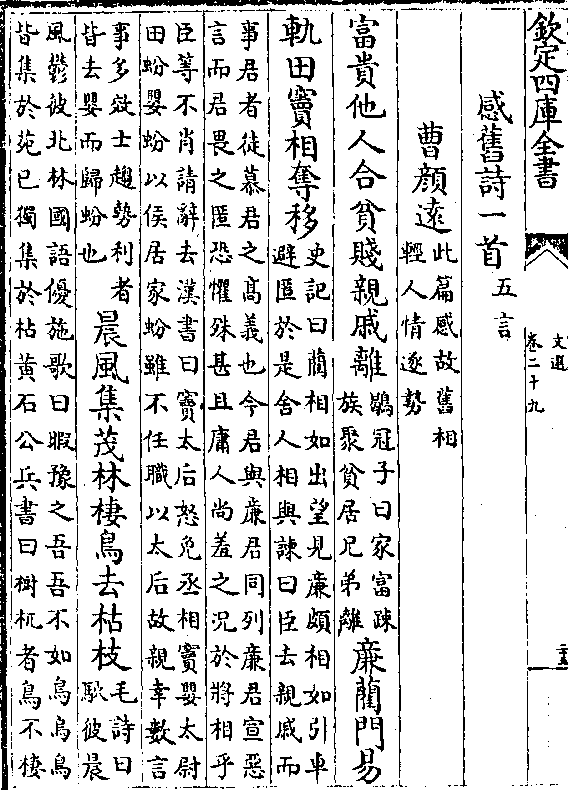 欽定四庫全書
文選
卷二十九
感舊詩一首 五言
曹顔逺 此篇感故舊相輕人情逐勢
富貴他人合貧賤親戚離 鶡冠子曰家富疎族聚貧居兄弟離 廉藺門易
軌田竇相奪移 史記曰藺相如出望見廉頗相如引車避匿於是舍人相與諫曰臣去親戚而
事君者徒慕君之髙義也今君與廉君同列廉君宣惡言而君畏之匿恐懼殊甚且庸人尚羞之况於將相乎
臣等不肖請辭去漢書曰竇太后怒免丞相竇嬰太尉田蚡嬰蚡以侯居家蚡雖不任職以太后故親幸數言
事多效士趨勢利者皆去嬰而歸蚡也 晨風集茂林棲鳥去枯枝 毛詩曰鴥彼晨
風鬱彼北林國語優施歌曰暇豫之吾吾不如烏烏鳥皆集於苑已獨集於枯黄石公兵書曰樹杌者鳥不棲